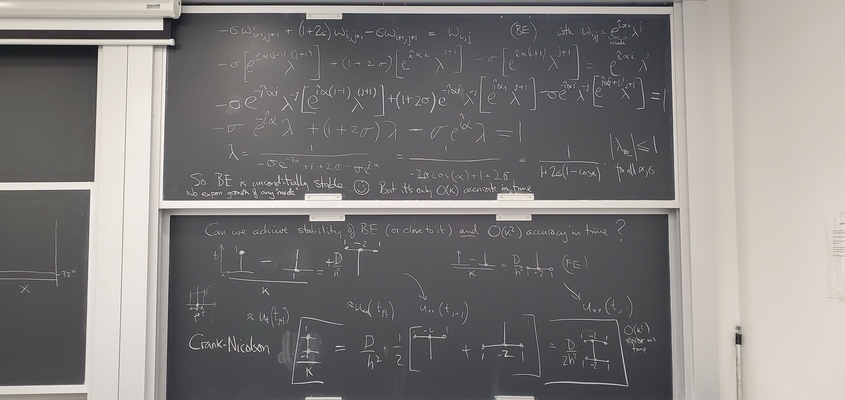 -σ w_{i-1,j+1} + (1+2σ) w_{i,j+1} - σ w_{i+1,j+1} = w_{i,j} (BE) with w_{ij} = e^{îαi} λ^j
mode
-σ[e^{îα(i-1)} λ^{j+1}] + (1+2σ)[e^{îαi} λ^{j+1}] - σ[e^{îα(i+1)} λ^{j+1}] = e^{îαi} λ^j
-σ e^{-îαi} λ^{-j} [e^{îα(i-1)} λ^{j+1}] + (1+2σ) e^{-îαi} λ^{-j} [e^{îαi} λ^{j+1}] - σ e^{-îαi} λ^{-j} [e^{îα(i+1)} λ^{j+1}] = 1
-σ e^{-îα} λ + (1+2σ) λ - σ e^{îα} λ = 1
λ = 1/(-σe^{-îα} + 1+2σ - σe^{îα}) = 1/(-2σ cos(α) + 1+2σ) = 1/(1+2σ(1-cosα)) |λ_{BE}| ≤ 1
for all α, σ.
So BE is unconditially stable ☺ But it's only O(k) accurate in time
No expon. growth of any mode
Can we achieve stability of BE (or close to it) and O(k²) accuracy in time?
t 1 - 1 = D/h² 1 -2 1
K
1 - 1 = D/h² 1 -2 1 (FE)
K
-32"
x
≈ u_t(t_{j+½}) u_{xx}(t_{j+1}) u_{xx}(t_j)
Crank-Nicolson 1 -1 / K = D/h² · 1/2 [1 -2 1 + 1 -2 1] = D/2h² 1 -2 1 1 -2 1
O(k²)
error in
time